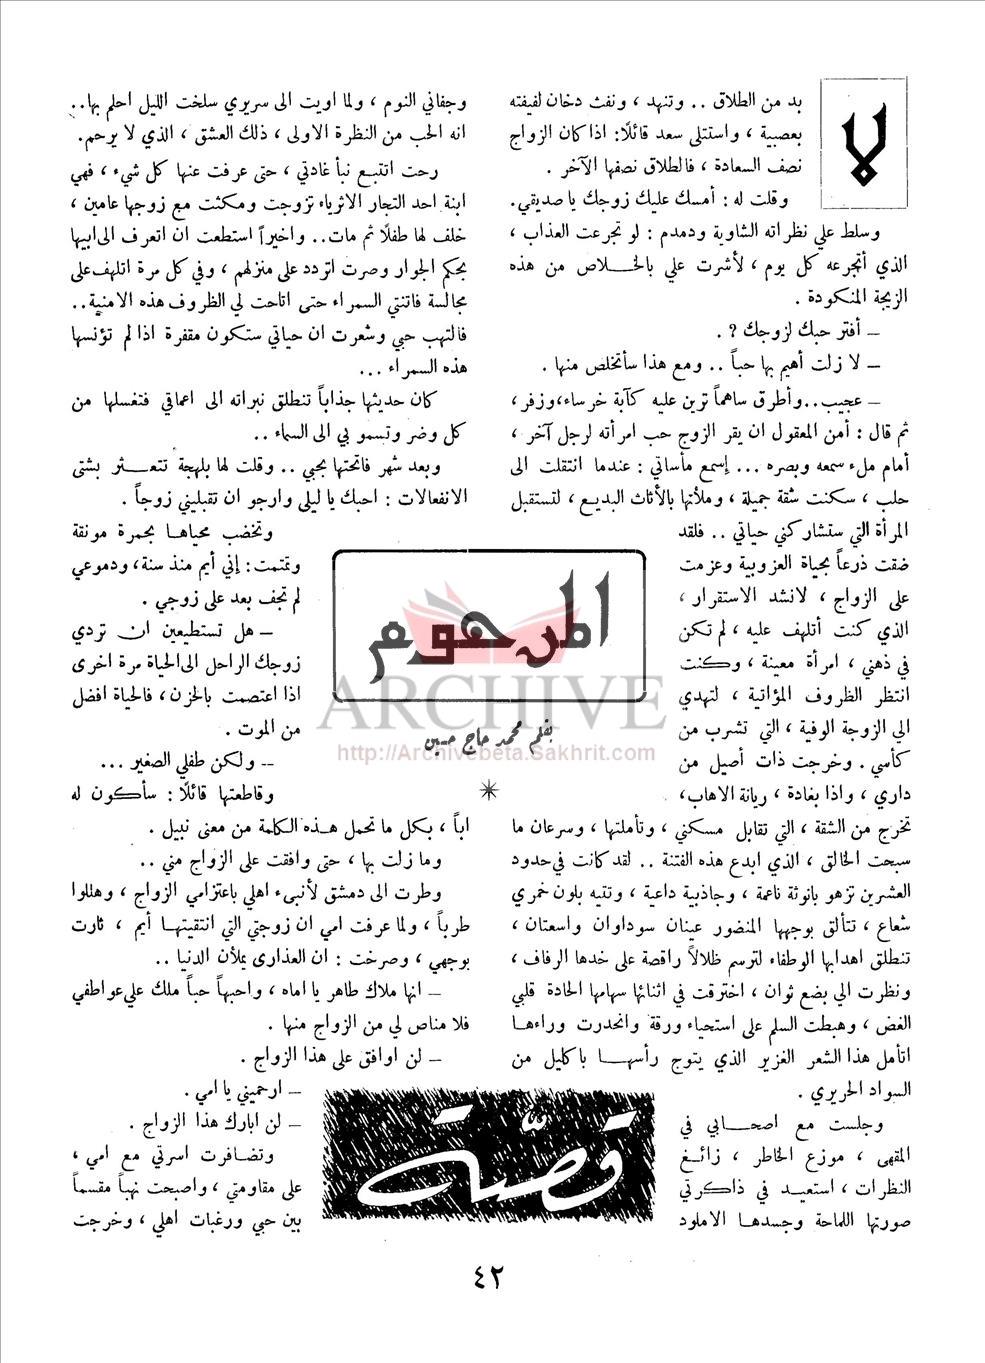 المرحوم
بقلم محمد حاج حسين
قصّة
لا
بد من الطلاق .. وتنهد ، ونفث دخان لفيفته
بعصبية ، واستتلى سعد قائلًا: اذا كان الزواج
نصف السعادة ، فالطلاق نصفها الآخر .
وقلت له : أمسك عليك زوجك يا صديقي.
وسلط علي نظراته الشاوية ودمدم : لو تجرعت العذاب ،
الذي أتجرعه كل يوم ، لأشرت علي بالخلاص من هذه
الزيجة المنكودة .
ــ أفتر حبك لزوجك ? .
ــ لا زلت أهيم بها حباً .. ومع هذا سأتخلص منها .
ــ عجيب..وأطرق ساهماً ترين عليه كآبة خرساء،وزفر ،
ثم قال : أمن المعقول ان يقر الزوج حب امرأته لرجل آخر ،
أمام ملء سمعه وبصره ... إسمع مأساتي : عندما انتقلت الى
حلب ، سكنت شقة جميلة ، وملأتها بالأثاث البديع ، لتستقبل
المرأة التي ستشاركني حياتي .. فلقد
ضقت ذرعاً بحياة العزوبية وعزمت
على الزواج ، لانشد الاستقرار ،
الذي كنت أتلهف عليه ، لم تكن
في ذهني ، امرأة معينة ، وكنت
انتظر الظروف المؤاتية ، لتهدي
الي الزوجة الوفية ، التي تشرب من
كأسي . وخرجت ذات أصيل من
داري ، واذا بغادة ، ريانة الاهاب،
تخرج من الشقة ، التي تقابل مسكني ، وتأملتها ، وسرعان ما
سبحت الخالق ، الذي ابدع هذه الفتنة .. لقد كانت في حدود
العشرين تزهو بانوثة ناعمة ، وجاذبية داعية ، وتتيه بلون خمري
شعاع ، تتألق بوجهها المنضور عينان سوداوان واسعتان ،
تنطلق اهدابها الوطفاء لترسم ظلالاً راقصة على خدها الرفاف ،
ونظرت الي بضع ثوان ، اخترقت في اثنائها سهامها الحادة قلبي
الغض ، وهبطت السلم على استحياء ورقة وانحدرت وراءها
اتأمل هذا الشعر الغزير الذي يتوج رأسها باكليل من
السواد الحريري .
وجلست مع اصحابي في
المقهى ، موزع الخاطر ، زائغ
النظرات ، استعيد في ذاكرتي
صورتها اللماحة وجسدها الاملود
وجفاني النوم ، ولما اويت الى سريري سلخت الليل احلم بها..
انه الحب من النظرة الاولى ، ذلك العشق ، الذي لا يرحم.
رحت اتتبع نبأ غادتي ، حتى عرفت عنها كل شيء ، فهي
ابنة احد التجار الاثرياء تزوجت ومكثت مع زوجها عامين ،
خلف لها طفلًا ثم مات.. واخيراً استطعت ان اتعرف الى ابيها
بحكم الجوار وصرت اتردد على منزلهم ، وفي كل مرة اتلهف على
مجالسة فاتنتي السمراء حتى اتاحت لي الظروف هذه الامنية..
فالتهب حبي وشعرت ان حياتي ستكون مقفرة اذا لم تؤنسها
هذه السمراء ...
كان حديثها جذاباً تنطلق نبراته الى اعماقي فتغسلها من
كل وضر وتسمو بي الى السماء ..
وبعد شهر فاتحتها بحبي .. وقلت لها بلهجة تتعثر بشتى
الانفعالات : احبك يا ليلى وارجو ان تقبليني زوجاً .
وتخضب محياها بحمرة مونقة
وتمتمت: إني أيم منذ سنة، ودموعي
لم تجف بعد على زوجي .
ــ هل تستطيعين ان تردي
زوجك الراحل الى الحياة مرة اخرى
اذا اعتصمت بالحزن، فالحياة افضل
من الموت .
ــ ولكن طفلي الصغير ...
وقاطعتها قائلًا : سأكون له
اباً ، بكل ما تحمل هذه الكلمة من معنى نبيل .
وما زلت بها ، حتى وافقت على الزواج مني ..
وطرت الى دمشق لأنبىء اهلي باعتزامي الزواج ، وهللوا
طرباً ، ولما عرفت امي ان زوجتي التي انتقيتها أيم ، ثارت
بوجهي ، وصرخت : ان العذارى يملأن الدنيا ..
ــ انها ملاك طاهر يا اماه ، واحبها حباً ملك علي عواطفي
فلا مناص لي من الزواج منها .
ــ لن اوافق على هذا الزواج .
ــ ارحميني يا امي .
ــ لن ابارك هذا الزواج .
وتضافرت اسرتي مع امي ،
على مقاومتي ، واصبحت نهباً مقسماً
بين حبي ورغبات اهلي ، وخرجت
٤٢
ARCHIVE
http://Archivebeta.Sakhrit.com